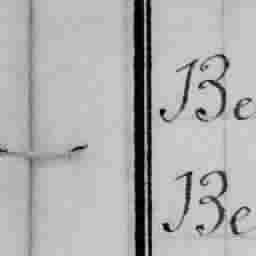 Be
Be